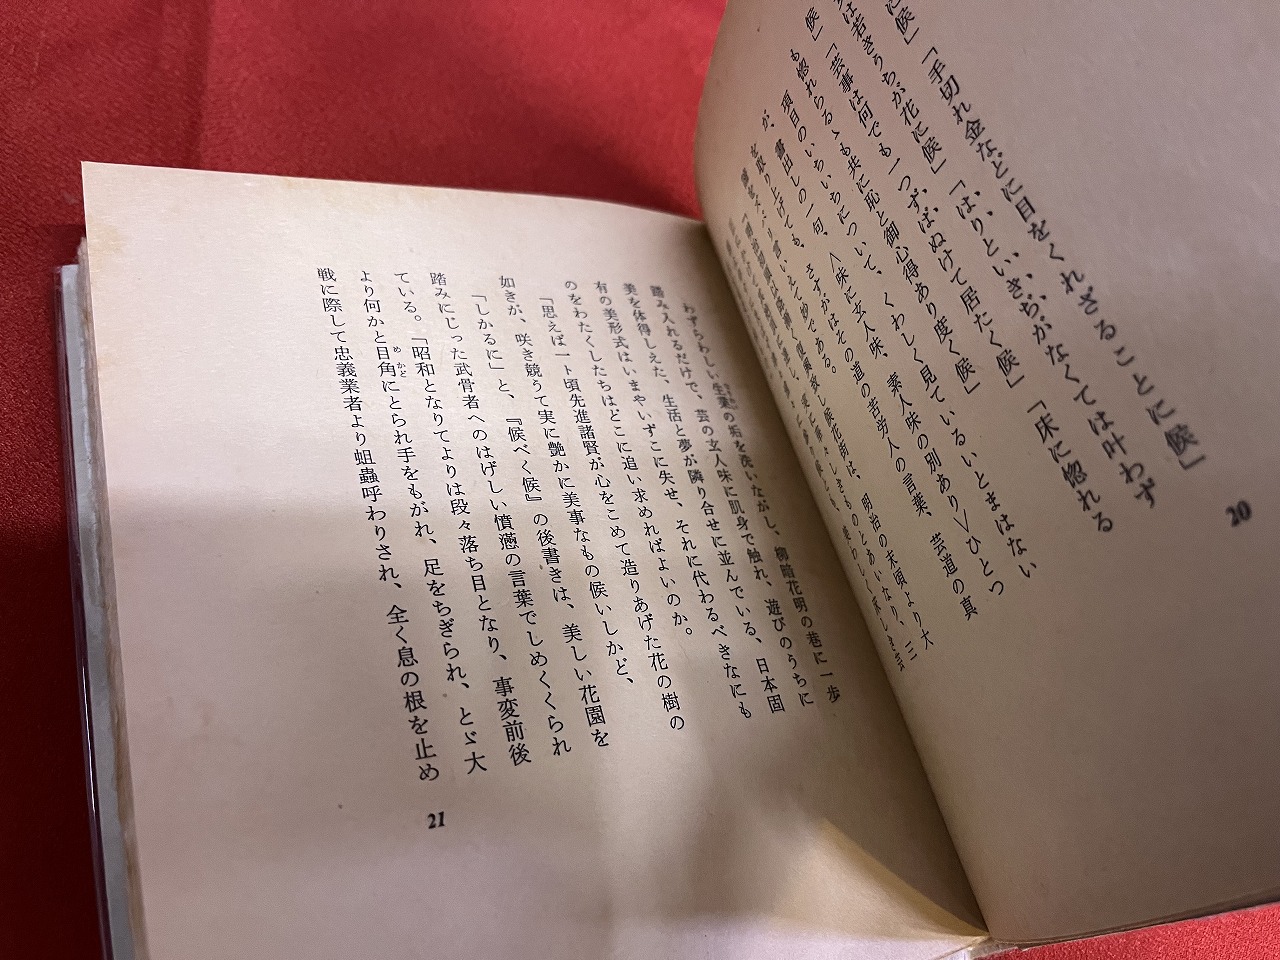 に候」「手切れ金などに目をくれざることに候」
は若きうちが花に候」「はりといきぢがなくては叶わず
候」「芸事は何でも一つずばぬけて居たく候」「床に惚れる
も惚れらるゝも共に恥と御心得あり度く候」
項目のいちいちについて、くわしく見ているいとまはない
が、書出しの一句、〈味に玄人味、素人味の別あり〉ひとつ
を取り上げても、さすがはその道の苦労人の言葉、芸道の真
髄をズバリ言いえて妙である。
20
わずらわしい生業の垢を洗いながし、柳暗花明の巷に一歩
踏み入れるだけで、芸の玄人味に肌身で触れ、遊びのうちに
美を体得しえた、生活と夢が隣り合せに並んでいる、日本固
有の美形式はいまやいずこに失せ、それに代わるべきなにも
のをわたくしたちはどこに追い求めればよいのか。
「思えば一ト頃先進諸賢が心をこめて造りあげた花の樹の
如きが、咲き競うて実に艶かに美事なもの候いしかど、
「しかるに」と、『候べく候』の後書きは、美しい花園を
踏みにじった武骨者へのはげしい憤懣の言葉でしめくくられ
ている。「昭和となりてよりは段々落ち目となり、事変前後
より何かと目角にとられ手をもがれ、足をちぎられ、とゞ大
めかど
戦に際して忠義業者より蛆蟲呼わりされ、全く息の根を止め
21